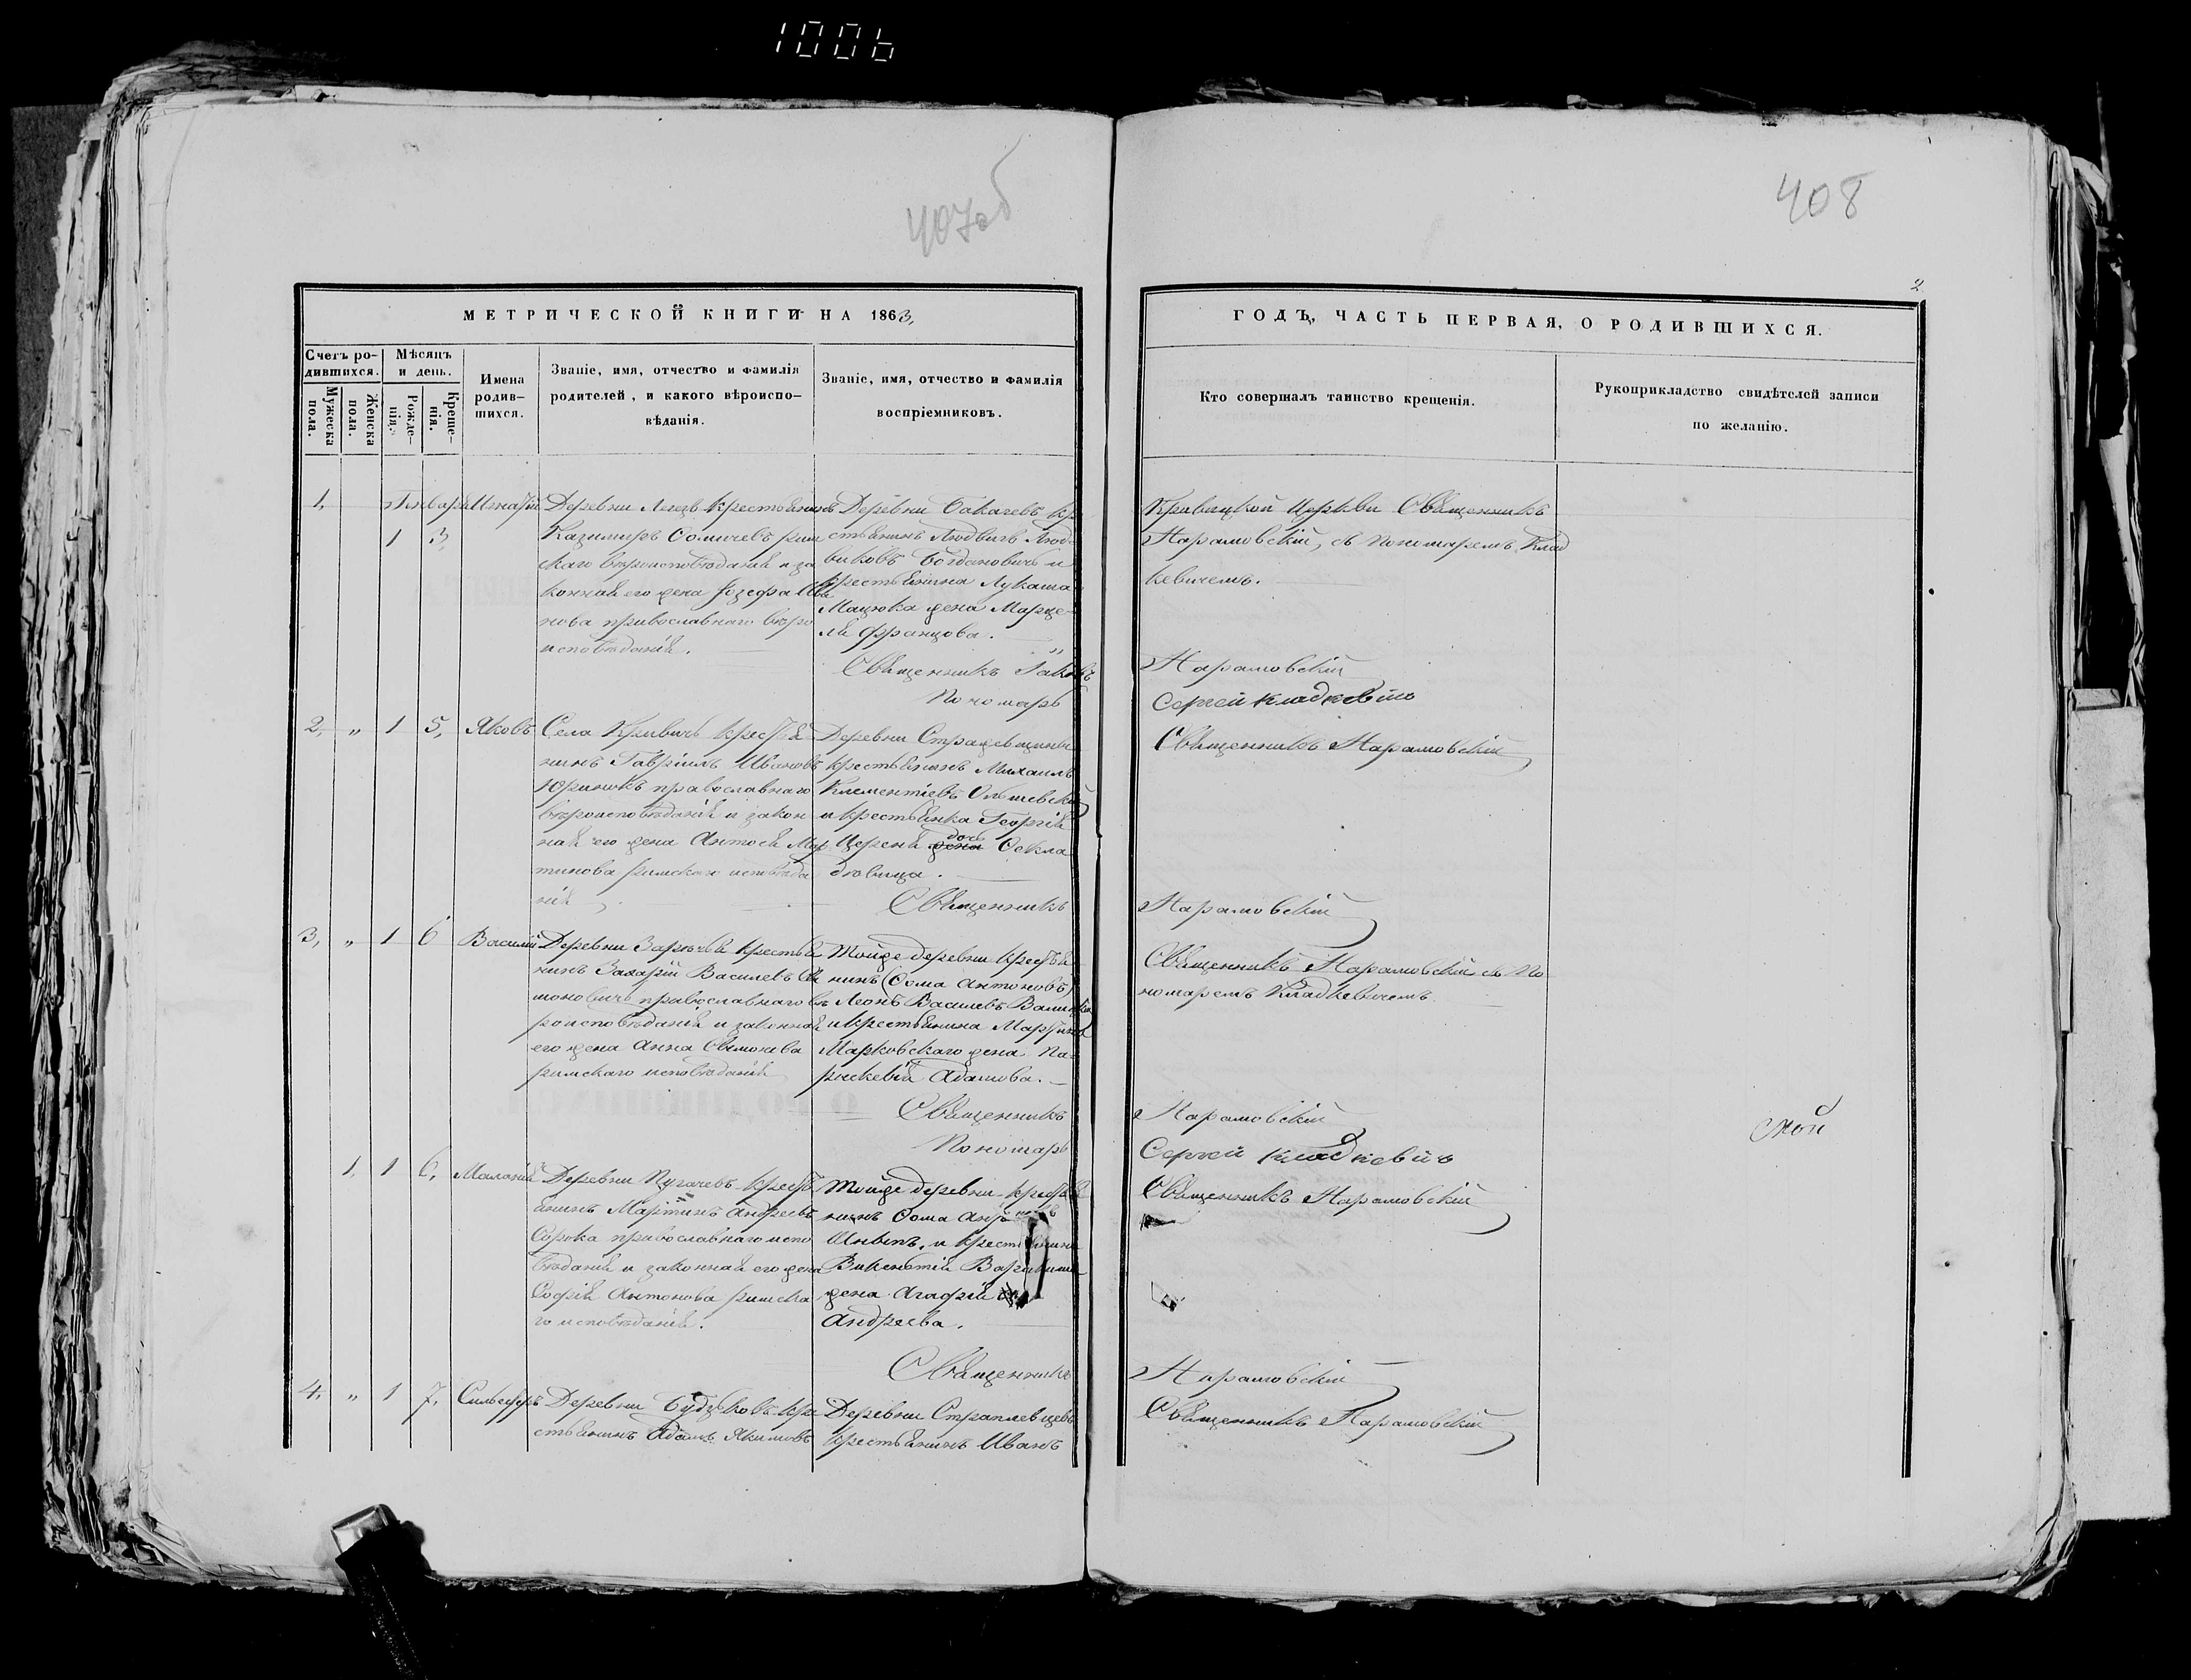 1006
407об
408
2
МЕТРИЧЕСКОЙ КНИГИ НА 1863,
ГОДЪ, ЧАСТЬ ПЕРВАЯ, О РОДИВШИХСЯ.
Счетъ ро-
дившихся.
Мужеска
пола.
Женска
пола.
Мѣсяцъ
и день.
Рожде-
нія.
Креще-
нія.
Имена
родив-
шихся.
Званіе, имя, отчество и фамилія
родителей, и какого вѣроиспо-
вѣданія.
Званіе, имя, отчество и фамилія
воспріемниковъ.
Кто совершалъ таинство крещенія.
Рукоприкладство свидѣтелей записи
по желанію.
1,
Январь
1 3,
Игнатій
Деревни крестьянинъ
Казимиръ рим
скаго вѣроисповѣданія и за
конная его жена Іозефа Ива
нова православнаго вѣро
исповѣданія.
Деревни Бакачевъ кр
стьянинъ Людвигъ Людо
виковъ Богдановичъ и
крестьянина Лукаша
Мацюка жена Марце-
ля Францова.
Священникъ Іаковъ
Пономарь
Кривицкой Церкви Священникъ
Нарановскій, съ пономаремъ Клад
кевичемъ.
Нарановскій
Сергей Кладкевичъ
2, „ 1 5, Яковъ
Села Кривичъ крестья
нинъ Гавріилъ Ивановъ
православнаго
вѣроисповѣданія и закон
ная его жена Антося Мар
тинова римскаго исповѣда
нія
Деревни
крестьянинъ Михаилъ
Климентіевъ
и крестьянка Георгія
Церени жена дочь Оекла
дѣвица.
Священникъ
Священникъ Нарановскій
Нарановскій
3, „ 1 6 Василій
Деревни Зарѣчья крестья
нинъ Захарій Василевъ Си
моновичъ православнаго вѣ
роисповѣданія и законная
его жена Анна Симонова
римскаго исповѣданія
Тойже деревни крестья
нинъ (Ѳома Антоновъ)
Леонъ Василевъ
и крестьянина Мартина
Марковскаго жена Па-
раскевія Адамова.
Священникъ
Пономарь
Священникъ Нарановскій съ по
номаремъ Кладкевичемъ
Нарановскій
Сергей Кладкевичъ
1, 1 6, Маланія
Деревни Пугачевъ крест
янинъ Мартинъ Андреевъ
Сорока православнаго испо
вѣданія и законная его жена
Софія Антонова римска
го исповѣданія.
Тойже деревни крестья
нинъ Ѳома
и крестьянина
Викентія
жена Агафія
Андреева.
Священникъ
Священникъ Нарановскій
Нарановскій
4, „ 1 7, Сильвестръ
Деревни Будьковъ кре
стьянинъ Адамъ Якимовъ
Деревни
крестьянинъ Иванъ
Священникъ Нарановскій